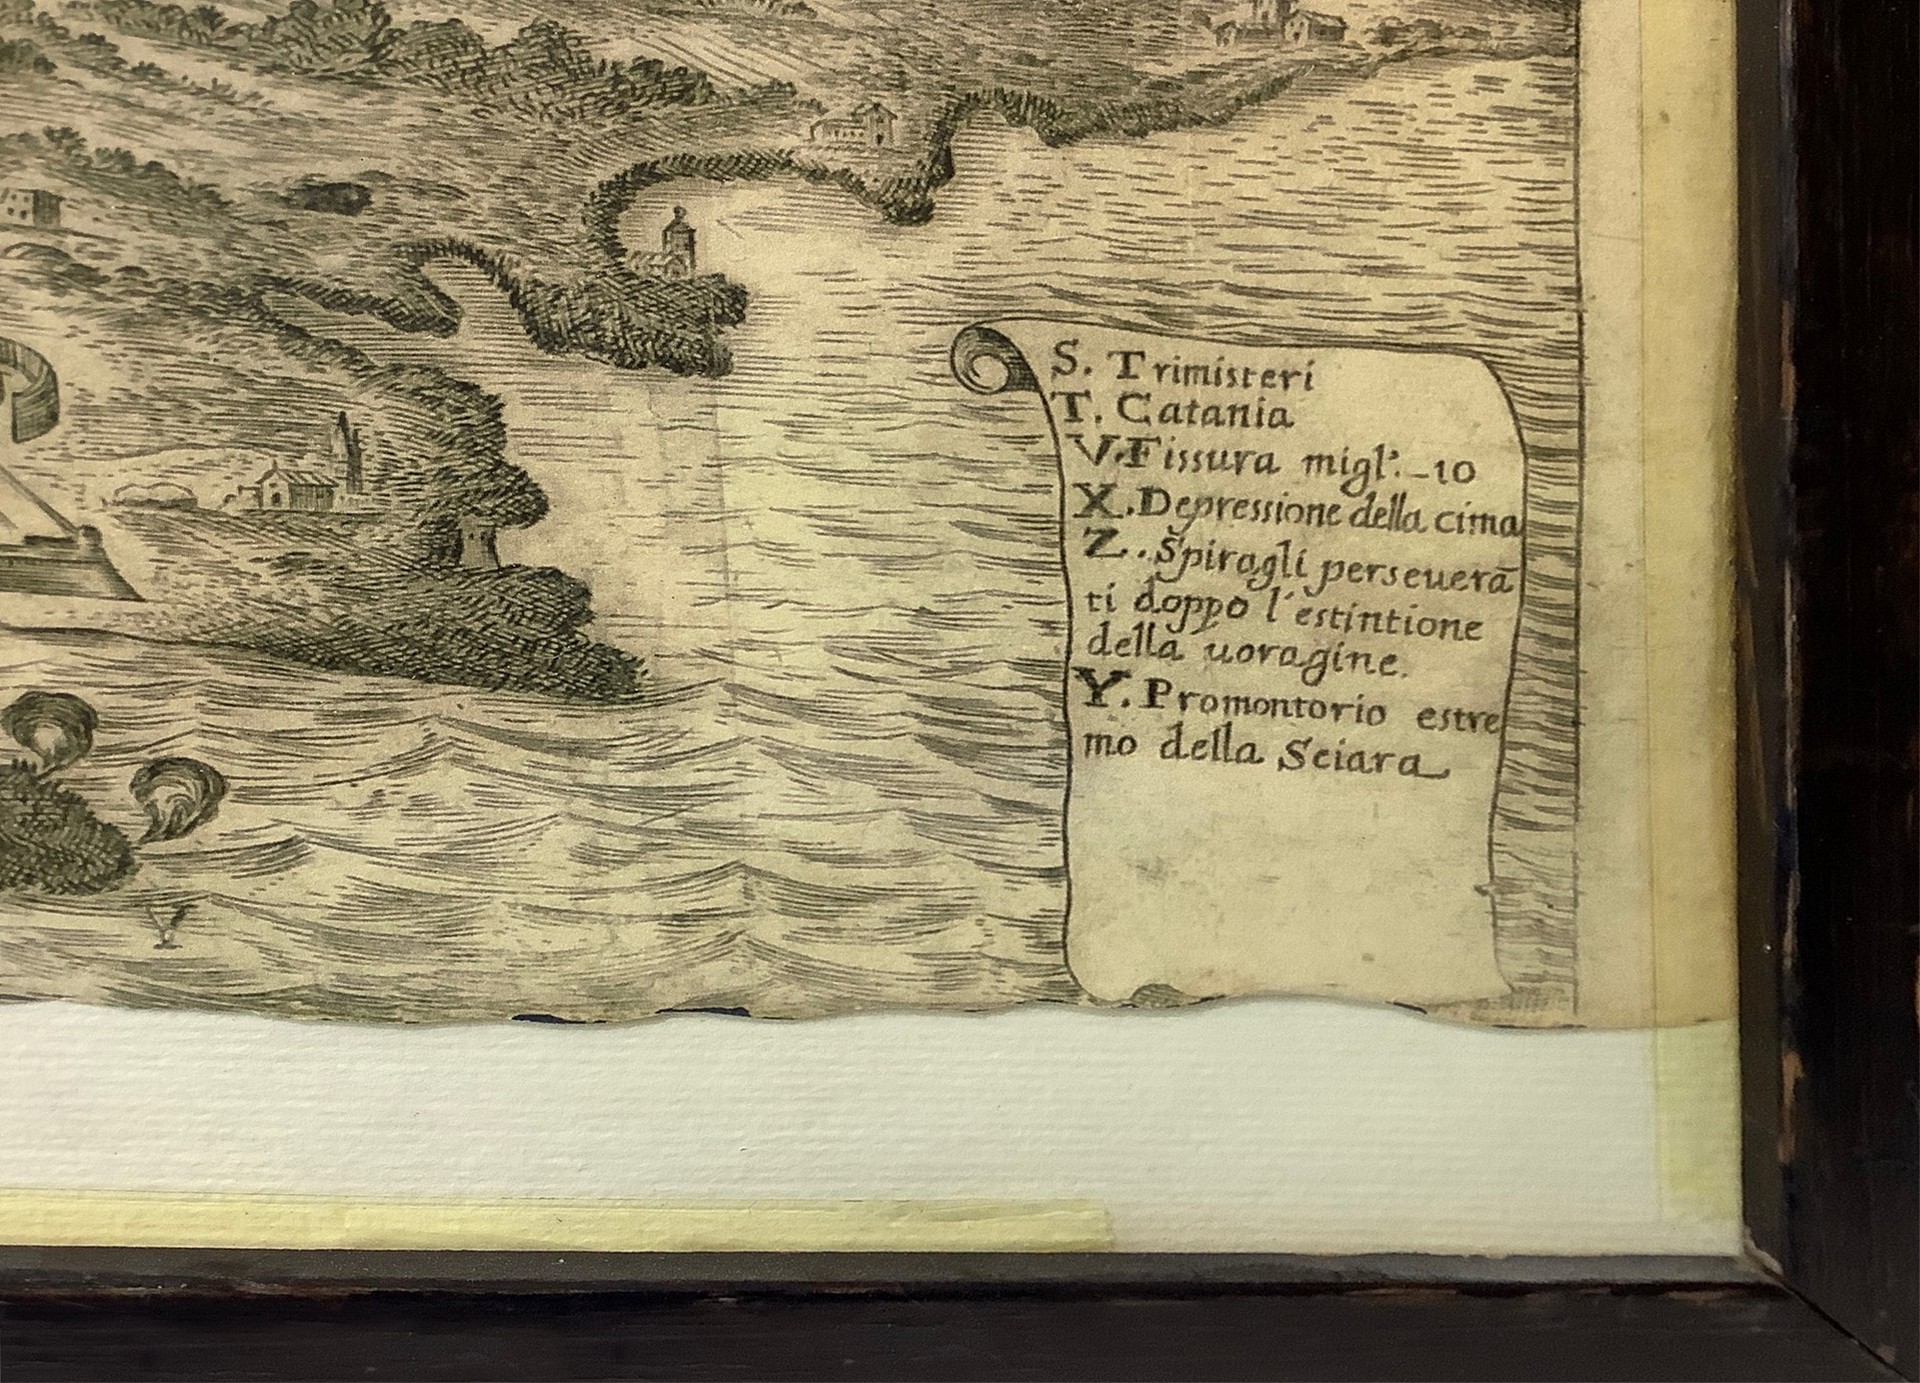 S. Trimisteri
T. Catania
V. Fissura migl.ª -10
X. Depressione della cima
Z. Spiragli perseuerā
ti doppo l'estintione
della uoragine.
Y. Promontorio estre
mo della Sciara
Y